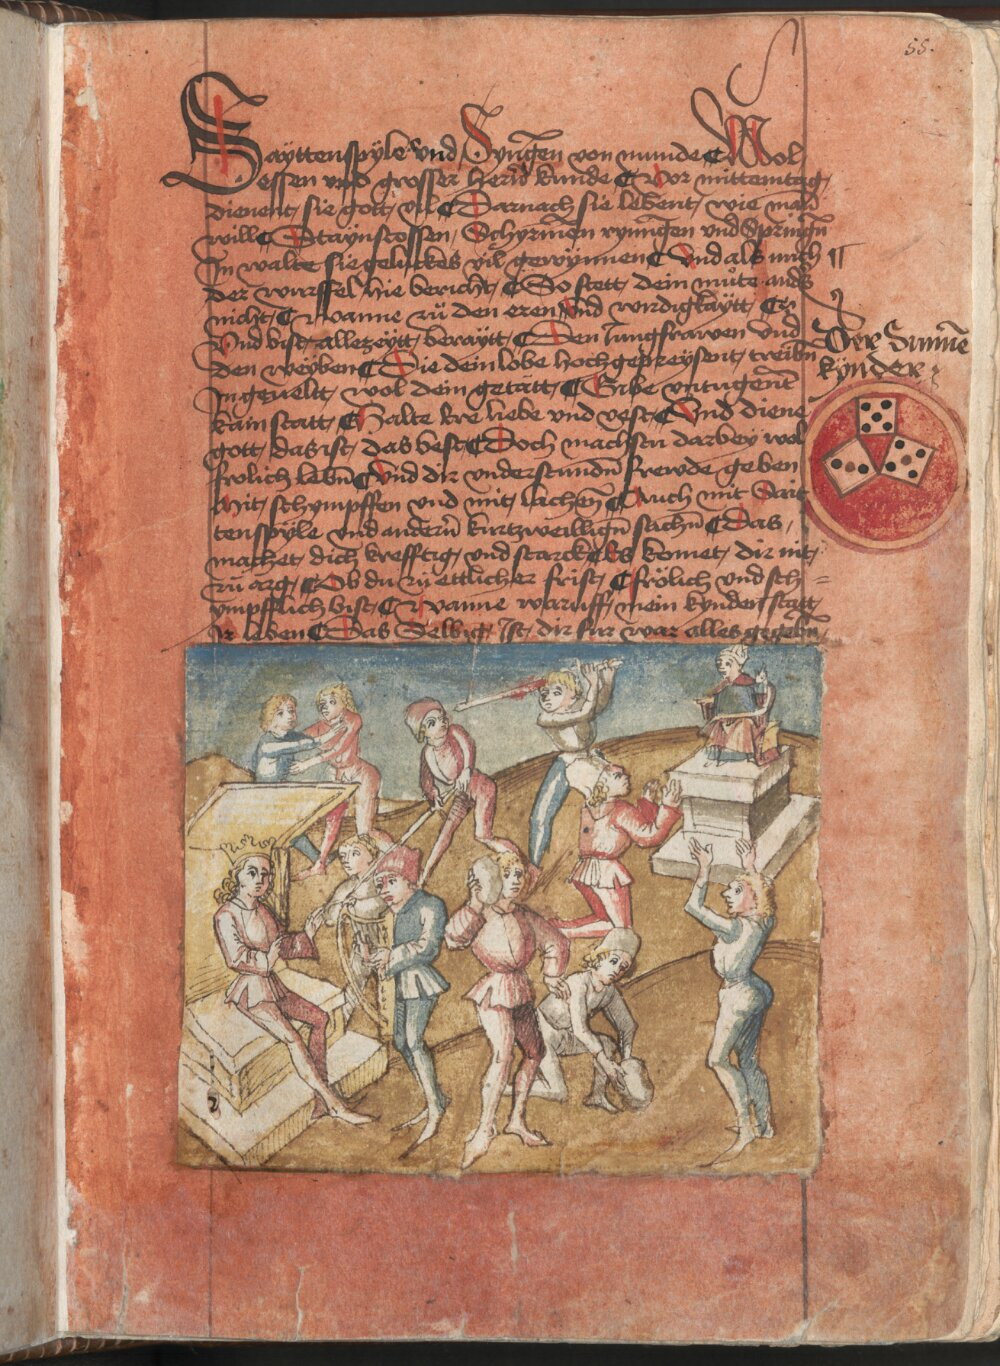 55.
Sayttenspÿle vnd Syngen von munde Wol
Essen vnd grosser herñ kunde Vor mittemtag
dienent sie gott vil Darnach sie lebent wie man
will Staÿnstossen Schyrmen ryngen vnd Springñ
In walte sie gelückes vil gewÿnnen Vnd als mich
der würffel hie bericht So stett dein můte anders
nicht Wanne zů den eren vnd wirdigkaÿtt
Vnd bist allezeÿtt beraÿtt Den Jungfrawen vnd
den weÿben Die dein lobe hochgepreÿsent treibñ
Ingeuellt wol dein getatt Gibe vntugent
kain statt Halte ere liebe vnd vest Vnd diene
gott das ist das best Doch machstu darbey wol
frolich lebñ Vnd dir vnderstundñ frewde geben
Mit schympffen vnd mit lachen Auch mit Sait
tenspÿle vnd anderñ kurtzweilligñ sachñ Das
machet dich krefftig vnd starck Es komet dir nit
zů arg Ob du zů ettlicher frist frölich vnd sch=
ympfflich bist Wanne waruff mein kynder statt
Ir leben Das Selbig Ist dir fur war alles gegebñ
Der Sunnẽ
kÿnder